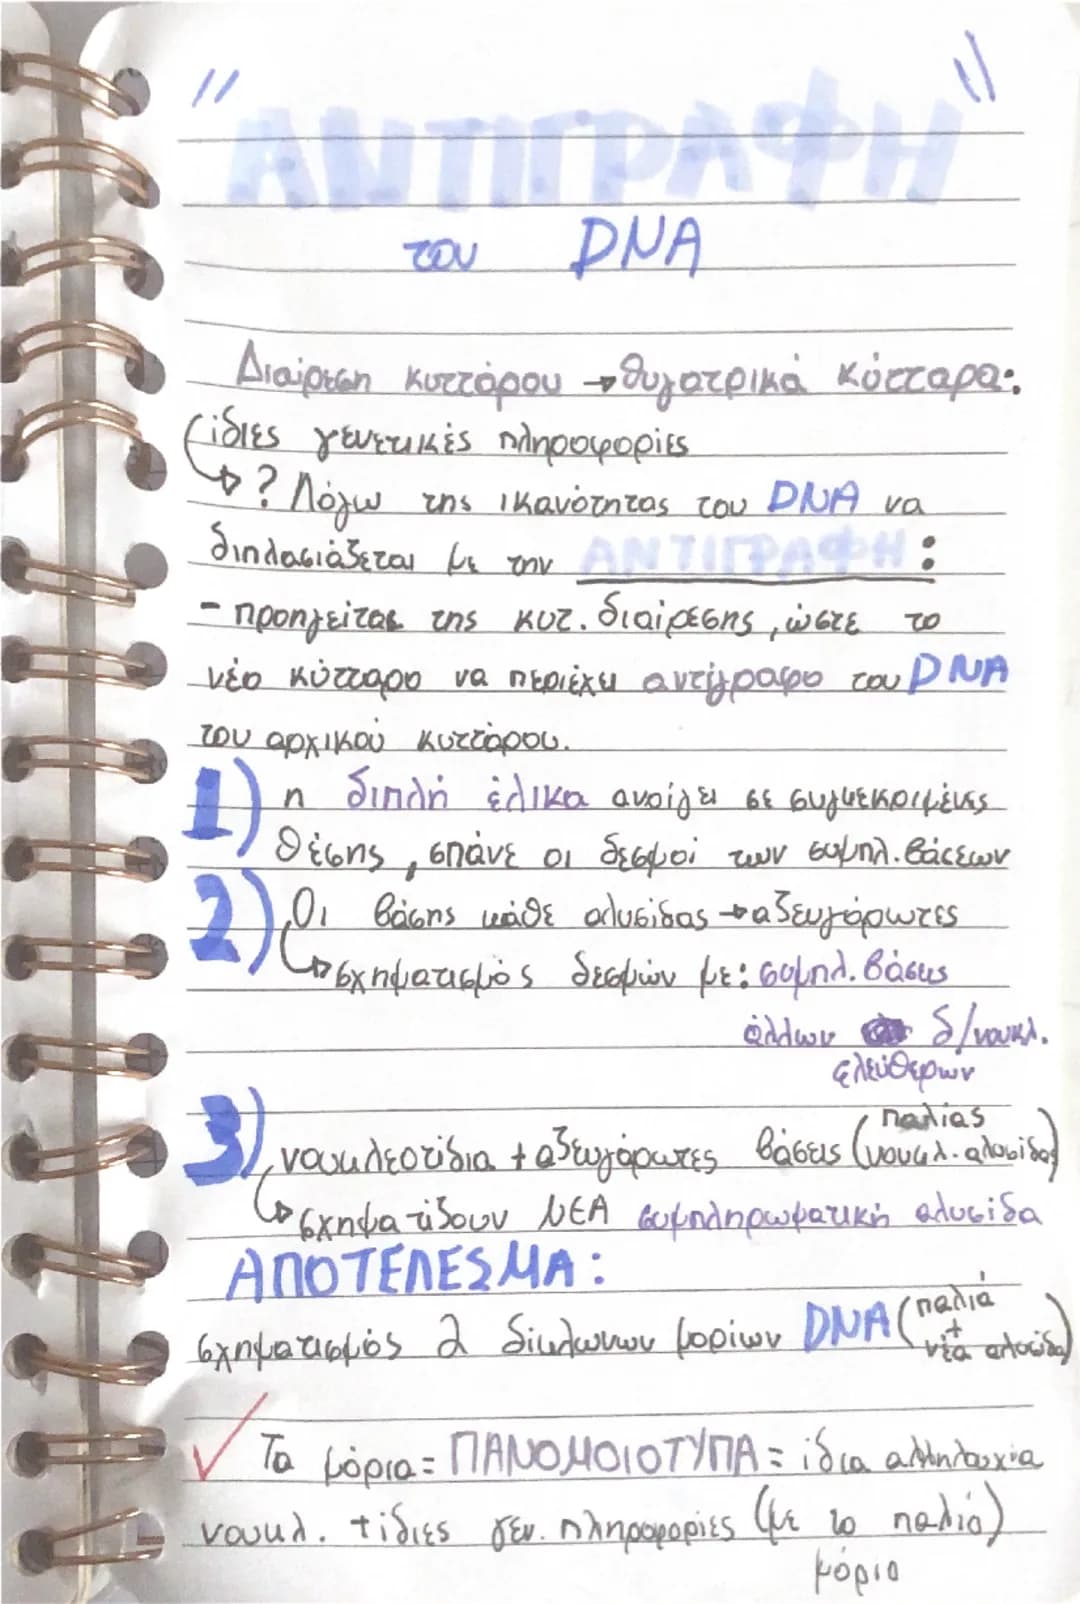 "ΑΝΤΙΓΡΑΦΗ"
του DNA
Διαίρεση κυττάρου → θυγατρικά κύτταρα:
ίδιες γενετικές πληροφορίες
↳ ? Λόγω της ικανότητας του DNA να
διπλασιάζεται με την ΑΝΤΙΓΡΑΦΗ:
- προηγείται της κυτ. διαίρεσης, ώστε το
νέο κύτταρο να περιέχει αντίγραφο του DNA
του αρχικού κυττάρου.
1) η διπλή έλικα ανοίγει σε συγκεκριμένες
θέσης, σπάνε οι δεσμοί των συμπλ. βάσεων
2) Οι βάσης κάθε αλυσίδας → αζευγάρωτες
↳ σχηματισμός δεσμών με: συμπλ. βάσεις
άλλων δ/νουκλ.
ελεύθερων
3) νουκλεοτίδια + αζευγάρωτες βάσεις (παλιάς
νουκλ. αλυσίδας)
↳ σχηματίζουν ΝΕΑ συμπληρωματική αλυσίδα
ΑΠΟΤΕΛΕΣΜΑ:
σχηματισμός 2 δίκλωνων μορίων DNA (παλιά
+
νέα αλυσίδα)
✓ Τα μόρια = ΠΑΝΟΜΟΙΟΤΥΠΑ = ίδια αλληλουχία
νουκλ. + ίδιες γεν. πληροφορίες (με το παλιό)
μόριο